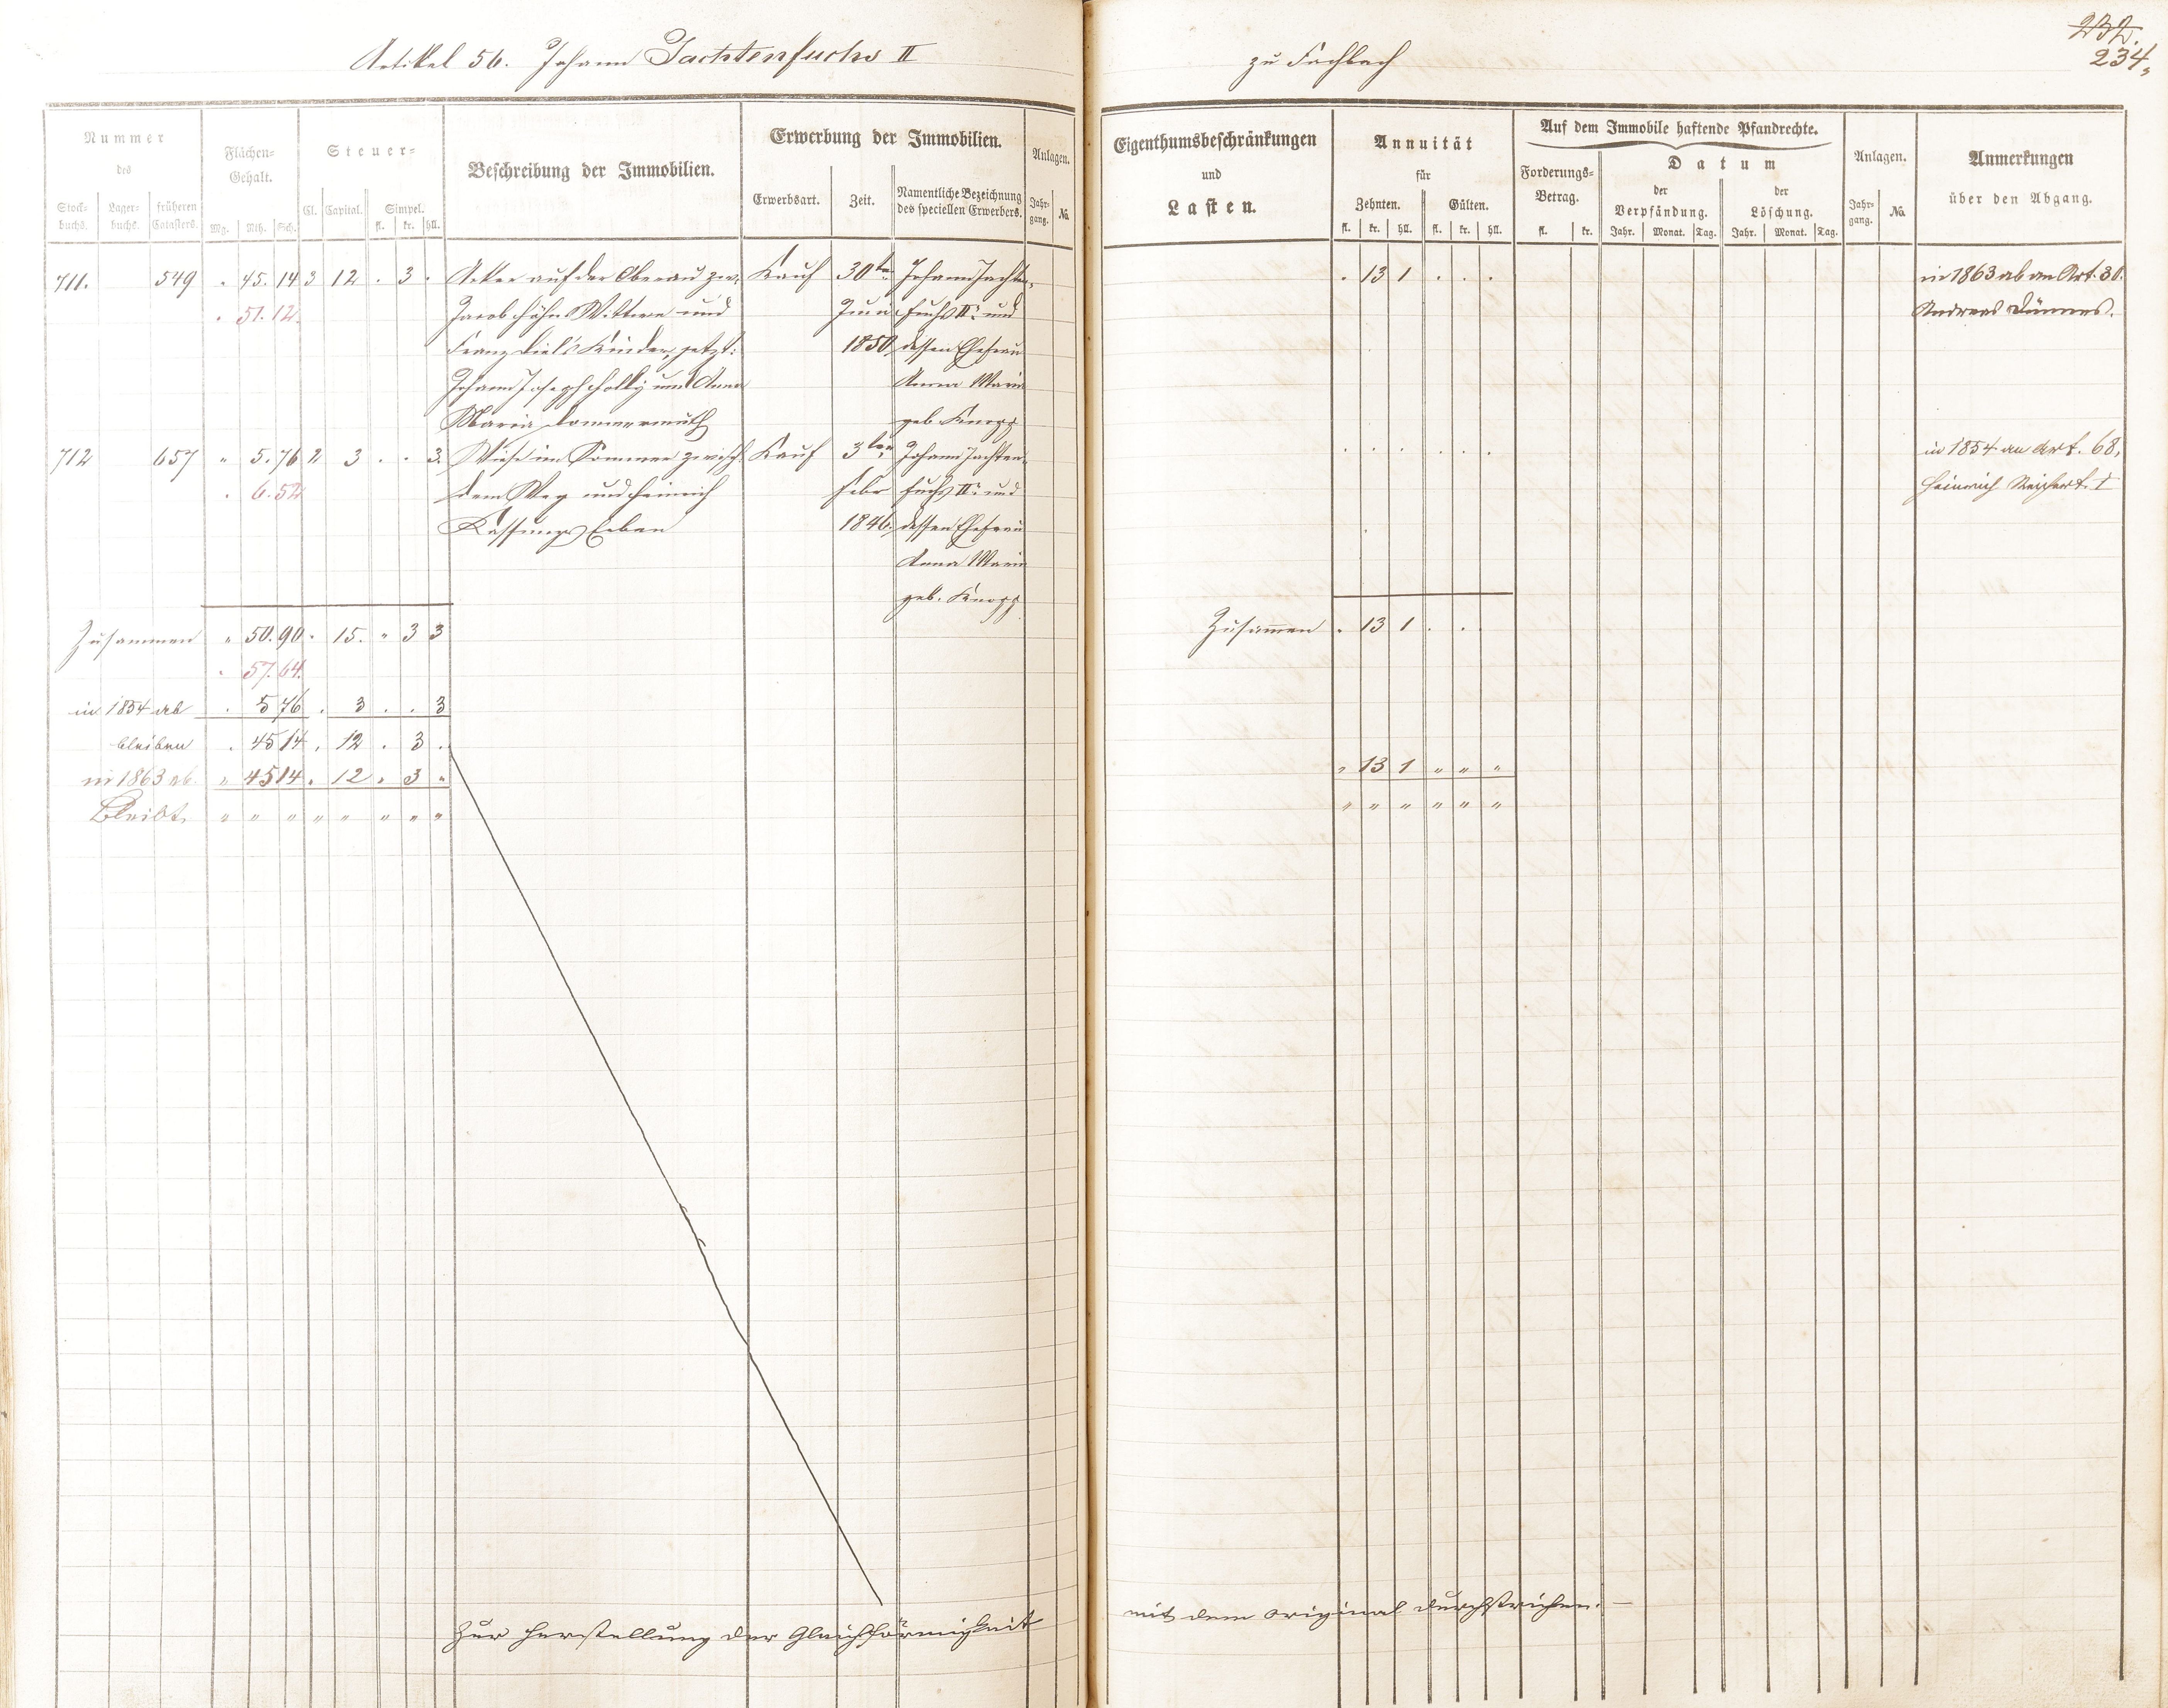 Artikel 56. Johann Jachtenfuchs II
zu Fachbach
232.
234.
Nummer
des
Stock-
buchs.
Lager-
buchs.
früheren
Catasters.
Flächen-
Gehalt.
Mg. Rth. Sch.
Steuer-
Cl. Capital. Simpel.
fl. kr. hll.
Beschreibung der Immobilien.
Erwerbung der Immobilien.
Erwerbsart. Zeit. Namentliche Bezeichnung
des speciellen Erwerbers.
Anlagen.
Jahr-
gang. No.
Eigenthumsbeschränkungen
und
Lasten.
Annuität
für
Zehnten. Gülten.
fl. kr. hll. fl. kr. hll.
Auf dem Immobile haftende Pfandrechte.
Forderungs-
Betrag.
fl. kr.
Datum
der
Verpfändung.
Jahr. Monat. Tag.
der
Löschung.
Jahr. Monat. Tag.
Anlagen.
Jahr-
gang. No.
Anmerkungen
über den Abgang.
711. 549 " 45. 14 3 12 . 3 . Acker auf der Oberau zw. Kauf 30ten Johann Jachten- . 13 1 . . . in 1863 ab an Art. 30.
. 51. 12. Jacob Höhn Wittwe und Juni fuchs IIr und Andreas Dünnes.
Franz Diel's Kinder, jetzt: 1850 dessen Ehefrau
Johann Joseph und Anna Anna Maria
Maria Dommermuth geb. Knopp
712 657 " 5. 76 2 3 . . 3. Wiese im Sommer zwisch. Kauf 3ten Johann Jachten- . . . . . . in 1854 an Art. 68,
. 6. 52 dem Weg und Heinrich Febr fuchs IIr und Heinrich Reichert I
Erben 1846. dessen Ehefrau
Anna Maria
geb. Knopp
Zusammen " 50. 90. 15. " 3 3 Zusammen . 13 1 . . .
. 57. 64.
in 1854 ab . 5 76 . 3 . . 3
bleiben . 45 14 . 12 . 3 .
in 1863 ab " 45 14 . 12 . 3 " " 13 1 " " "
Bleibt. " " " " " " " " " " " " " "
Zur Herstellung der Gleichförmigkeit mit dem Original durchstrichen. —